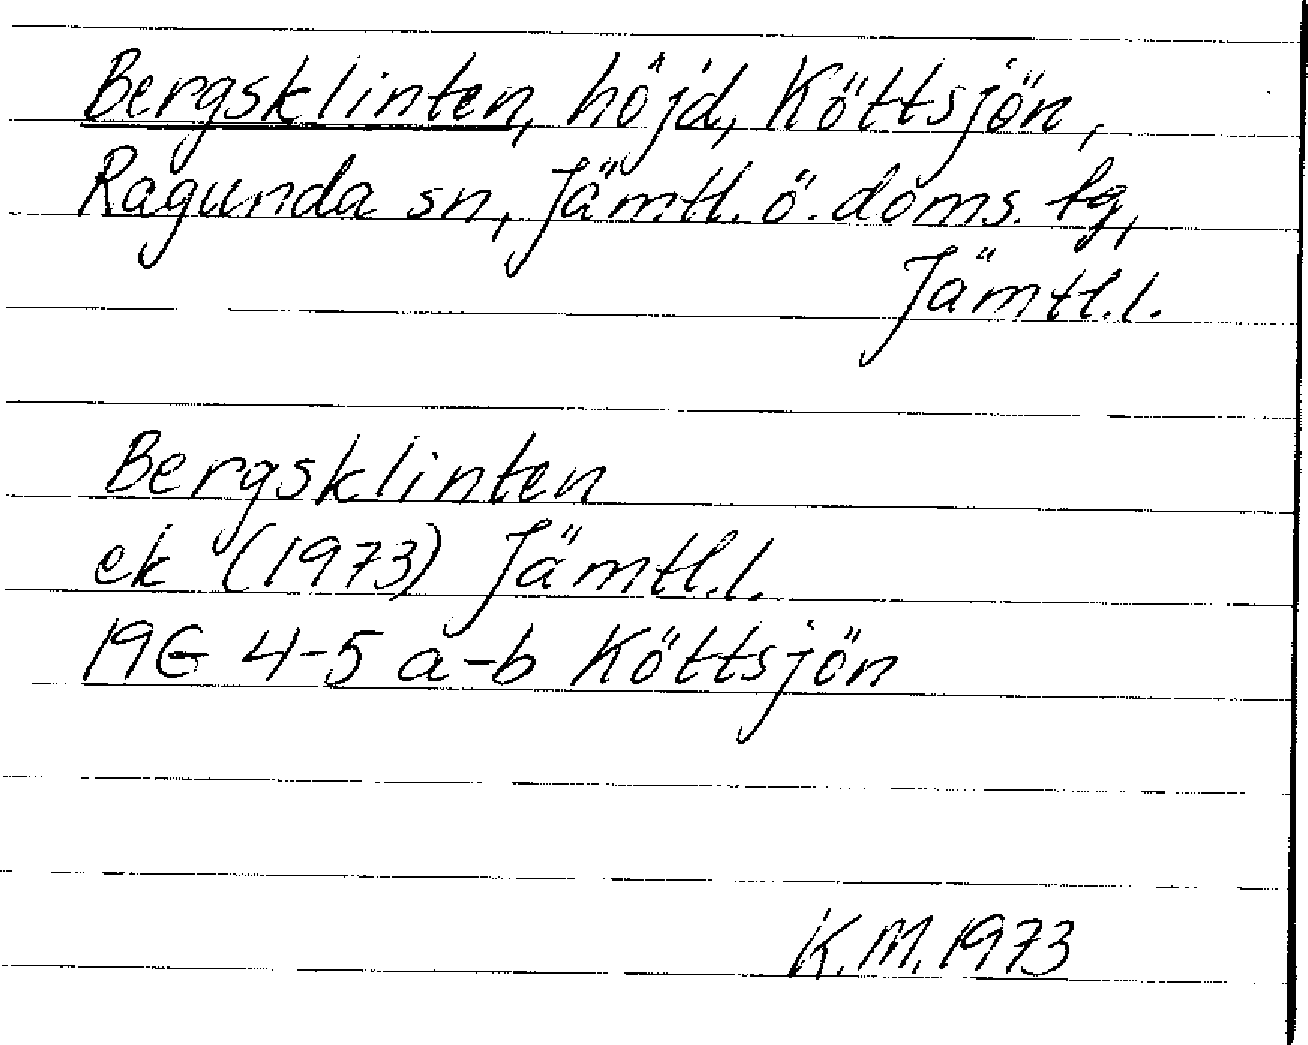 Bergsklinten, höjd, Köttsjön,
Ragunda sn, Jämtl. ö. doms. tg,
Jämtl.l.
Bergsklinten
ek (1973) Jämtl.l.
19G 4-5 a-b Köttsjön
K.M. 1973